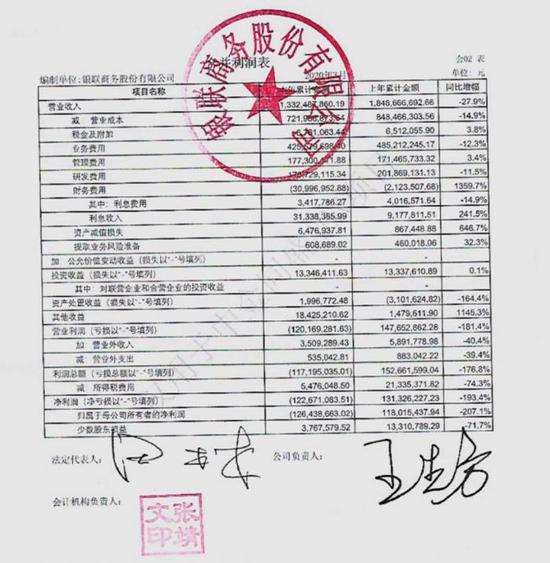 会02 表
合并利润表
编制单位:银联商务股份有限公司 2020年3月 单位: 元
项目名称 本年累计金额 上年累计金额 同比增幅
营业收入 1,332,487,860.19 1,848,666,692.66 -27.9%
减 营业成本 848,466,303.56 -14.9%
税金及附加 6,512,055.90 3.8%
业务费用 485,212,245.17 -12.3%
管理费用 171,465,733.32 3.4%
研发费用 201,869,131.13 -11.5%
财务费用 (30,996,952.88) (2,123,507.68) 1359.7%
其中: 利息费用 3,417,786.27 4,016,571.64 -14.9%
利息收入 31,338,365.99 9,177,811.51 241.5%
资产减值损失 6,476,937.81 867,448.88 646.7%
提取业务风险准备 608,689.02 460,018.06 32.3%
加 公允价值变动收益 (损失以"-"号填列) - -
投资收益 (损失以"-"号填列) 13,346,411.63 13,337,610.89 0.1%
其中: 对联营企业和合营企业的投资收益 - -
资产处置收益 (损失以"-"号填列) 1,996,772.48 (3,101,624.82) -164.4%
其他收益 18,425,210.62 1,479,611.90 1145.3%
营业利润 (亏损以"-"号填列) (120,169,281.63) 147,652,862.28 -181.4%
加 营业外收入 3,509,289.43 5,891,778.98 -40.4%
减 营业外支出 535,042.81 883,042.22 -39.4%
利润总额 (亏损总额以"-"号填列) (117,195,035.01) 152,661,599.04 -176.8%
减 所得税费用 5,476,048.50 21,335,371.82 -74.3%
净利润 (净亏损以"-"号填列) (122,671,083.51) 131,326,227.23 -193.4%
归属于母公司所有者的净利润 (126,438,663.02) 118,015,437.94 -207.1%
少数股东损益 3,767,579.52 13,310,789.29 -71.7%
法定代表人: 公司负责人:
会计机构负责人:
张靖文印
银联商务股份有限公司